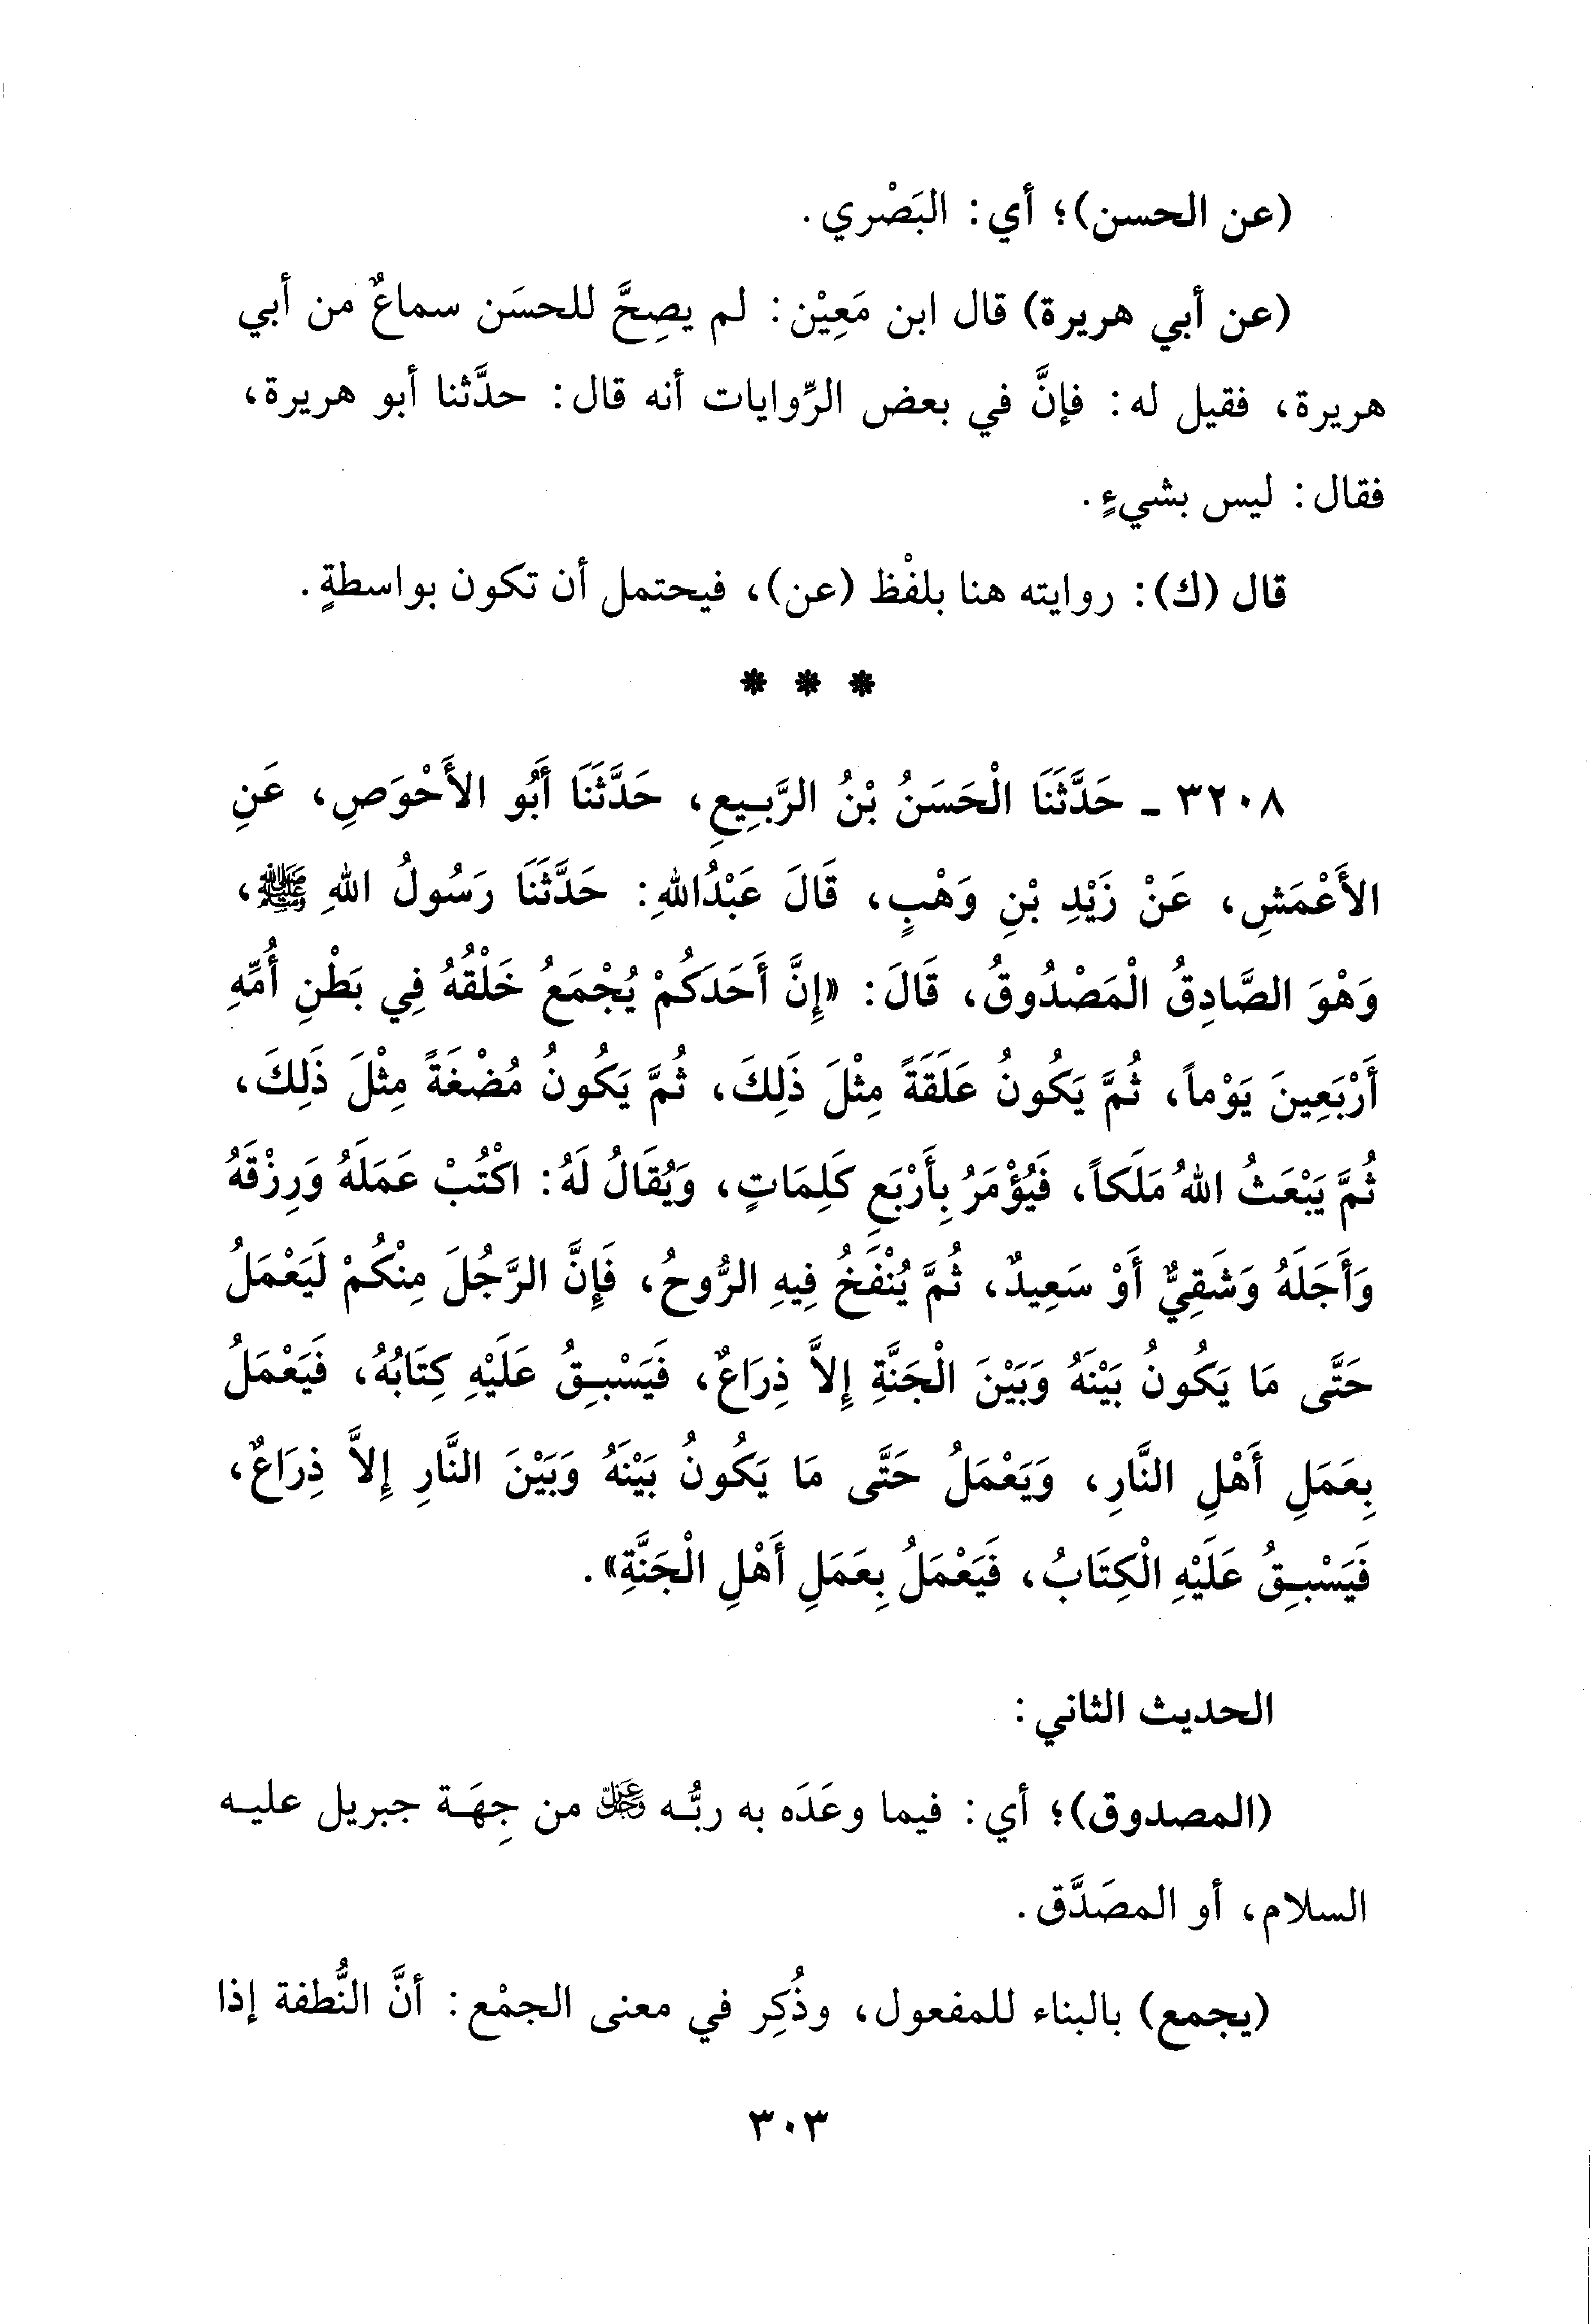 (عن الحسن)؛ أي: البَصْري.
(عن أبي هريرة) قال ابن مَعِيْن: لم يصِحَّ للحسَن سماعٌ من أبي
هريرة، فقيل له: فإنَّ في بعض الرِّوايات أنه قال: حدَّثنا أبو هريرة،
فقال: ليس بشيءٍ.
قال (ك): روايته هنا بلفْظ (عن)، فيحتمل أن تكون بواسطةٍ.
* * *
٣٢٠٨ ـ حَدَّثَنَا الْحَسَنُ بْنُ الرَّبِيعِ، حَدَّثَنَا أَبُو الأَحْوَصِ، عَنِ
الأَعْمَشِ، عَنْ زَيْدِ بْنِ وَهْبٍ، قَالَ عَبْدُاللهِ: حَدَّثَنَا رَسُولُ اللهِ ﷺ،
وَهْوَ الصَّادِقُ الْمَصْدُوقُ، قَالَ: «إِنَّ أَحَدَكُمْ يُجْمَعُ خَلْقُهُ فِي بَطْنِ أُمِّهِ
أَرْبَعِينَ يَوْماً، ثُمَّ يَكُونُ عَلَقَةً مِثْلَ ذَلِكَ، ثُمَّ يَكُونُ مُضْغَةً مِثْلَ ذَلِكَ،
ثُمَّ يَبْعَثُ اللهُ مَلَكاً، فَيُؤْمَرُ بِأَرْبَعِ كَلِمَاتٍ، وَيُقَالُ لَهُ: اكْتُبْ عَمَلَهُ وَرِزْقَهُ
وَأَجَلَهُ وَشَقِيٌّ أَوْ سَعِيدٌ، ثُمَّ يُنْفَخُ فِيهِ الرُّوحُ، فَإِنَّ الرَّجُلَ مِنْكُمْ لَيَعْمَلُ
حَتَّى مَا يَكُونُ بَيْنَهُ وَبَيْنَ الْجَنَّةِ إِلاَّ ذِرَاعٌ، فَيَسْبِقُ عَلَيْهِ كِتَابُهُ، فَيَعْمَلُ
بِعَمَلِ أَهْلِ النَّارِ، وَيَعْمَلُ حَتَّى مَا يَكُونُ بَيْنَهُ وَبَيْنَ النَّارِ إِلاَّ ذِرَاعٌ،
فَيَسْبِقُ عَلَيْهِ الْكِتَابُ، فَيَعْمَلُ بِعَمَلِ أَهْلِ الْجَنَّةِ».
الحديث الثاني:
(المصدوق)؛ أي: فيما وعَدَه به ربُّه ﷿ من جِهَة جبريل عليه
السلام، أو المصَدَّق.
(يجمع) بالبناء للمفعول، وذُكِر في معنى الجمْع: أنَّ النُّطفة إذا
٣٠٣